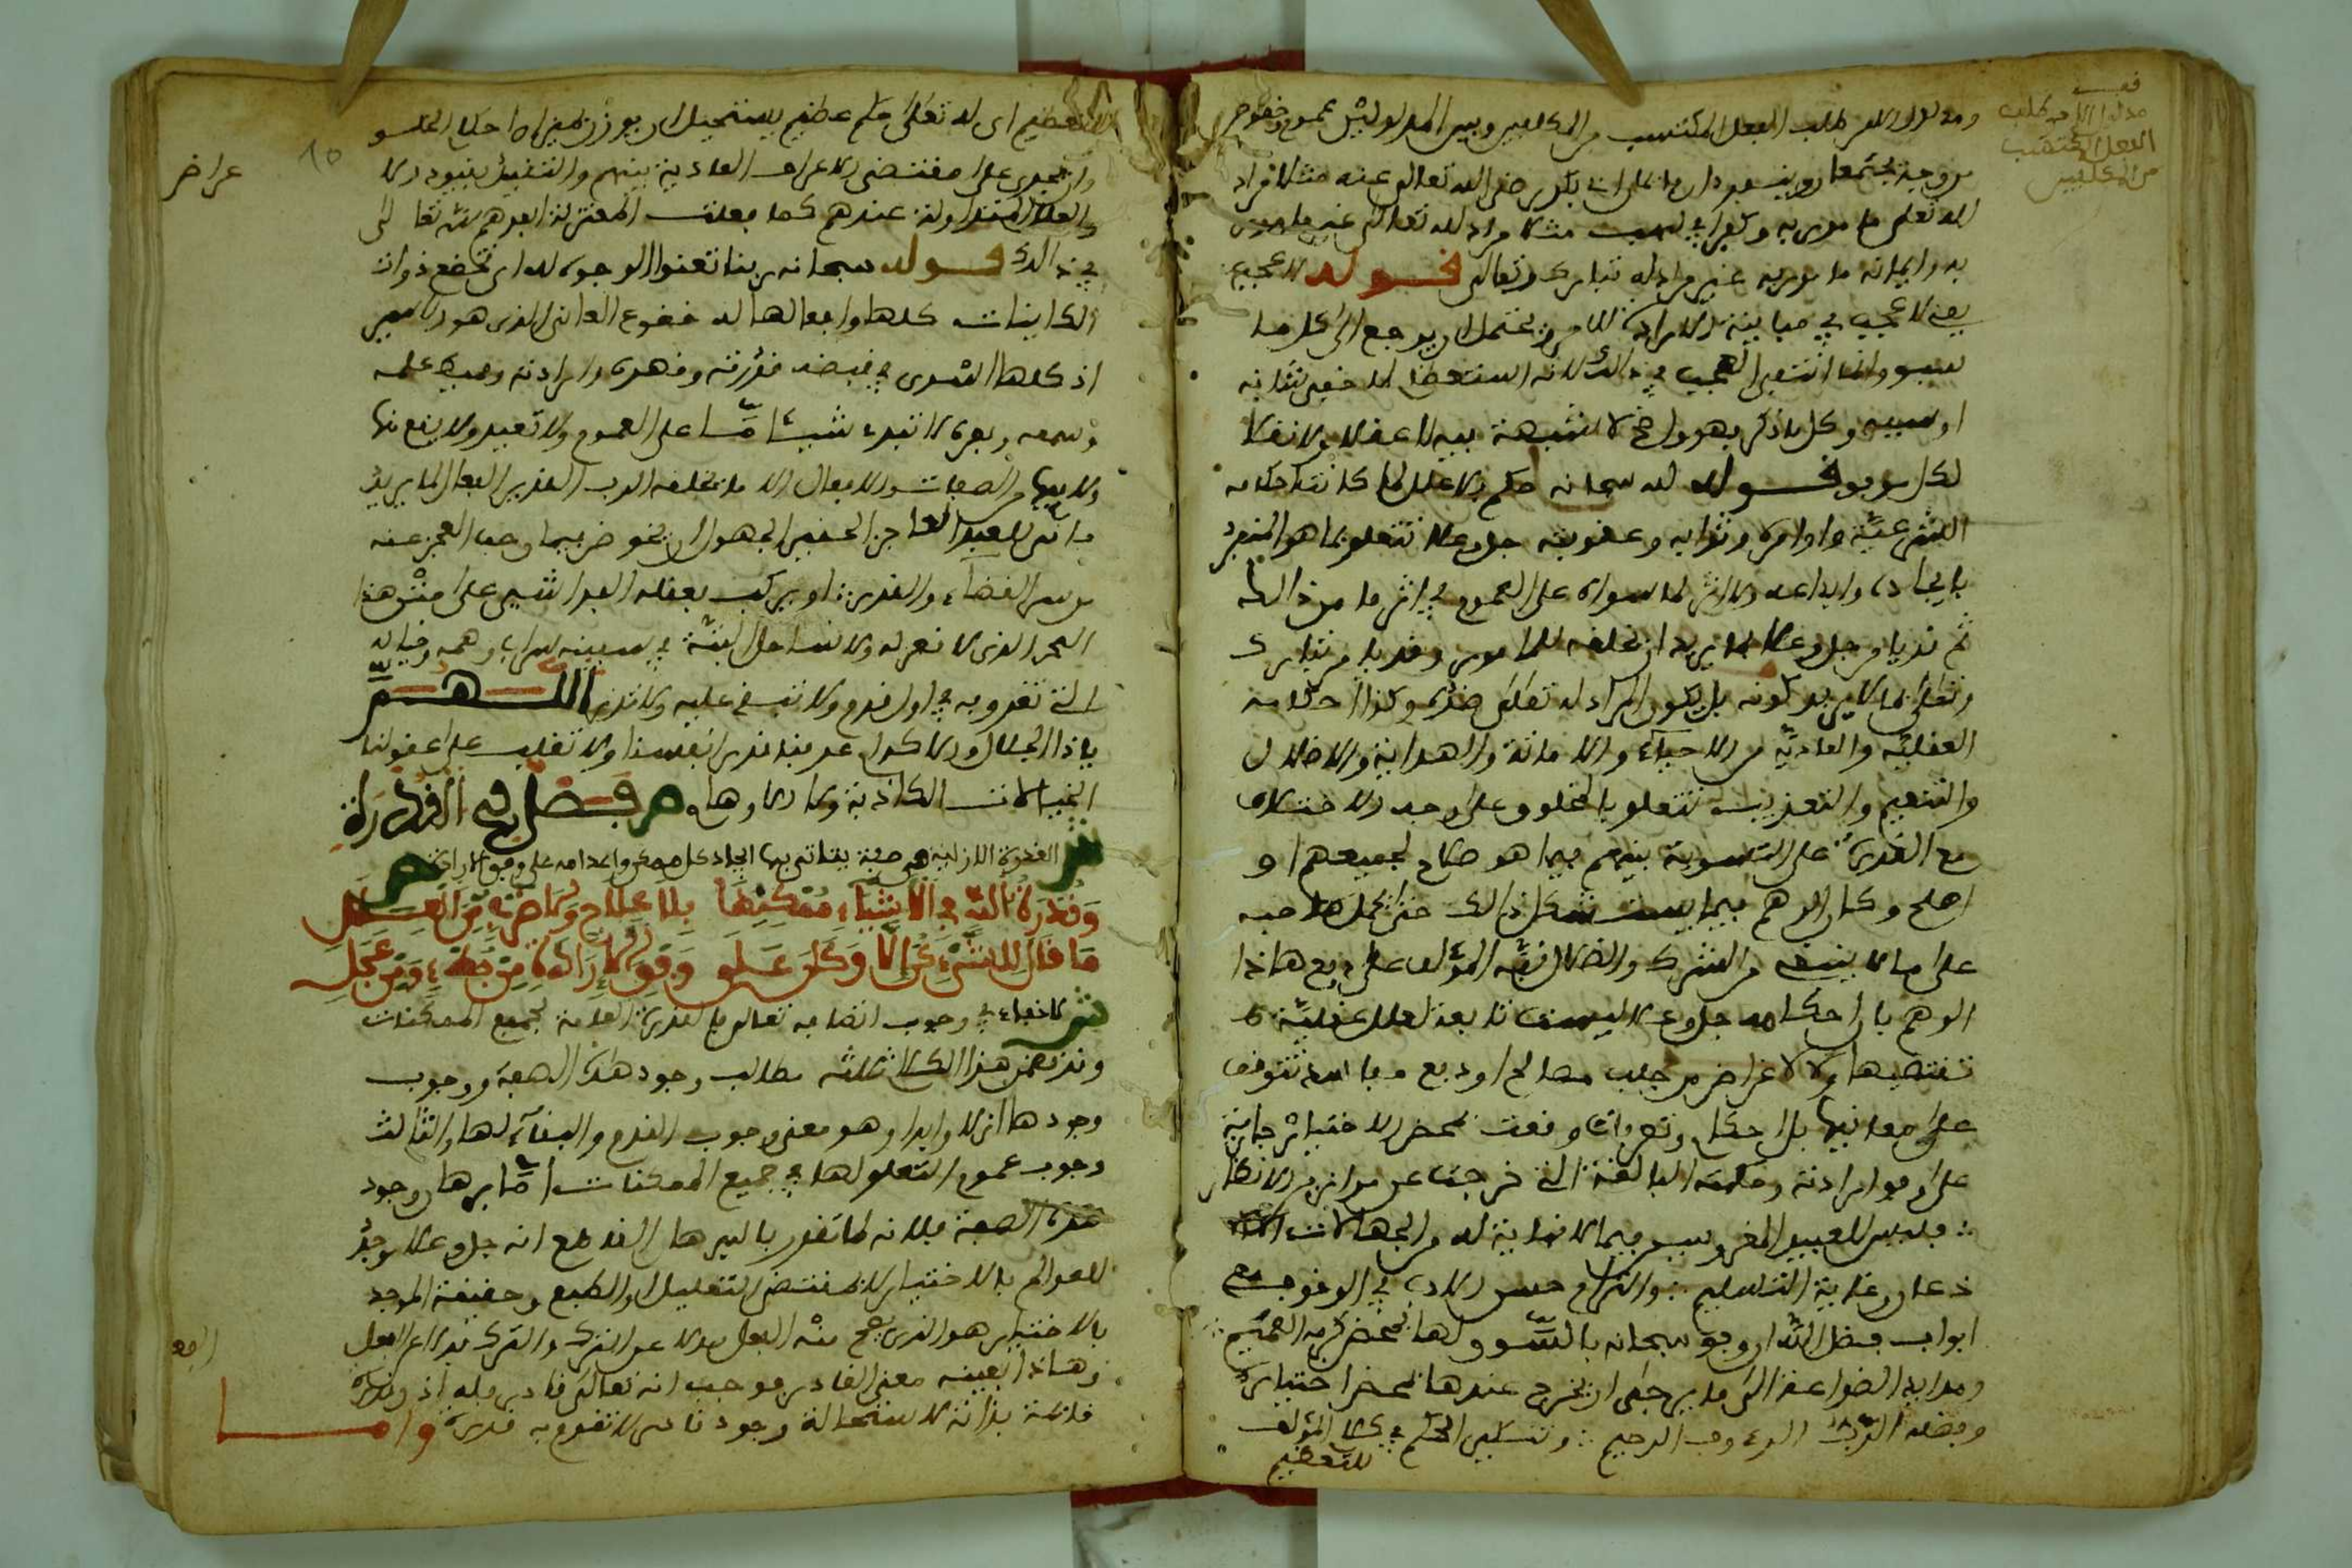 ومدلول الامر طلب الفعل المكتسب من المكلفين وبين المدلولين عموم وخصوص
من وجه يجتمعان وينفرد ان فايمان ابي بكر رضي الله تعالى عنه مثلا مراد
لله تعلى مامور به وكفر ابي لهب مثلا مراد لله تعالى غير مامور
به وايمانه مامور به غير مراد له تبارك وتعالى قوله لا عجيب
يعني لا عجيب في مباينة الارادة للامر ويحتمل ان يرجع الى كل ما
سبق وانما انتفى العجب في ذالك لانه استعظام امر خفي شانه
او سببه وكل ما ذكر فهو واضح لا شبهة فيه لا عقلا ولا نقلا
لكل موفق قوله له سبحانه حكم بلا علل لما كانت احكامه
الشرعية واوامره وثوابه وعقوبته جل وعلا تتعلق بما هو المنفرد
بايجاده وابداعه ولا اثر لما سواه على العموم في اثر ما من ذالك
ثم قد يامر جل وعلا بما يريد ان يخلفه للمامور وقد يامر تبارك
وتعلى بما لا يريد كونه بل يكون المراد له تعلى ضده وكذا احكامه
العقلية والعادية من الاحياء والاماتة والهداية والاضلال
والتنعيم والتعذيب تتعلق بالخلق على وجه الاختلاف
مع القدرة على التسوية بينهم فيما هو صلاح لجميعهم او
اصلح وكان الوهم فيما يستشكل ذالك حتى يحمل صاحبه
على ما لا ينبغي من الشرك والضلال نبه المؤلف على دفع هاذا
الوهم بان احكامه جل وعلا ليست تابعة لعلل عقلية
تقتضيها ولا لاغراض من جلب مصالح او دفع مفاسد تتوقف
على معانيها بل احكام وتصرفات وقعت بمحض الاختيار جارية
على وفق ارادته وحكمته البالغة التي خرجت عن موازين الانظار
فليس للعبيد المغموسين فيما لا نهاية له من الجهالات الا
ذعان وغاية التسليم والتزام حسن الادب في الوقوف مع
ابواب فضل الله ان وفق سبحانه بالتسوق لها بمحض كرمه العميم
ومد ايدي الضراعة الى ما يرجى ان يخرج عندها بمحض اختياره
وفضله الرب الرءوف الرحيم وتنكير الحكم في كلام المؤلف
للتعظيم
مدلول الامر طلب
الفعل المكتسب
من المكلفين
للتعظيم اي له تعلى حكم عظيم يستحيل ان يوزن بميزان احكام الخلق
وان يجري على مقتضى الاعراف العادية بينهم والتقيد بقيود الا
عراض
والعلل المتداولة عندهم كما فعلت المعتزلة ابعدهم الله تعالى
في ذالك قوله سبحانه ربنا تعنوا الوجوه له اي تخضع ذوات
الكاينات كلها وافعالها له خضوع العاني الذي هو الاسير
اذ كلها اسرى في قبضة قدرته وقهره وارادته وحيطة علمه
وسمعه وبصره لا تبدء شيئا ما على العموم ولا تعيد ولا يقع منها
ولا فيها من الصفات والافعال الا ما يخلقه الرب القدير الفعال لما يريد
فانى للعبد العاجز الحقير الجهول ان يخوض فيما وجب العجز عنه
من سر القضاء والقدر او يركب بعقله الفد اليسير على متن هذا
البحر الذي لا قعر له ولا ساحل البتة في سفينة سراب وهمه وخياله
التي تغرق به في اول قدم ولا تبقي عليه ولا تذر اللهم
ياذا الجلال والاكرام عرفنا قدر انفسنا ولا تغلب على عقولنا
الخيالات الكاذبة ولا الاوهام ص فصل في القدرة
ش القدرة الازلية هي صفة يتاتى بها ايجاد كل ممكن واعدامه على وفق الارادة ص
وقدرة الله في الاشياء ممكنها بلا علاج ولا ضرب من العمل
ما قال للشيء كن الا وكان على وفق الارادة من بطء ومن عجل
ش لا خفاء في وجوب اتصافه تعالى بالقدرة العامة لجميع الممكنات
وقد تضمن هذا الكلام ثلاثة مطالب وجود هذه الصفة ووجوب
وجودها ازلا وابدا وهو معنى وجوب القدم والبقاء لها والثالث
وجوب عموم التعلق لها في جميع الممكنات اما برهان وجود
هذه الصفة فلانه لما تقرر بالبرهان القاطع انه جل وعلا موجد
للعوالم بالاختيار لا بمقتضى التعليل او الطبع وحقيقة الموجد
بالاختيار هو الذي يصح منه الفعل بدلا عن الترك والترك بدلا عن الفعل
وهاذا بعينه معنى القادر فوجب انه تعالى قادر فله اذا قدرة
قائمة بذاته لاستحالة وجود قادر لا تقوم به قدرة واما